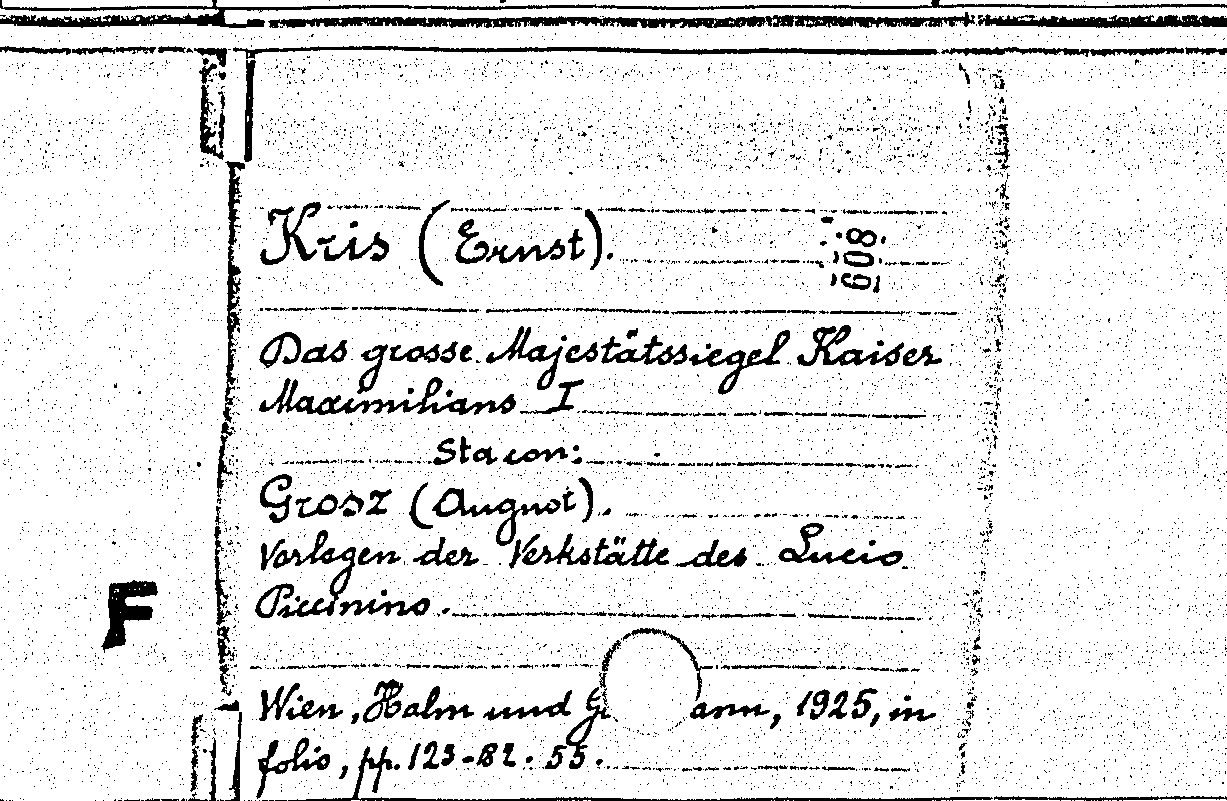 Kris (Ernst).
608
Das grosse Majestätssiegel Kaiser
Maximilians I
Sta con:
Grosz (August).
Vorlagen der Verkstätte des Lucio
Piccinino.
F
Wien, Halm und G ann, 1925, in
folio, pp. 123-82. 55.